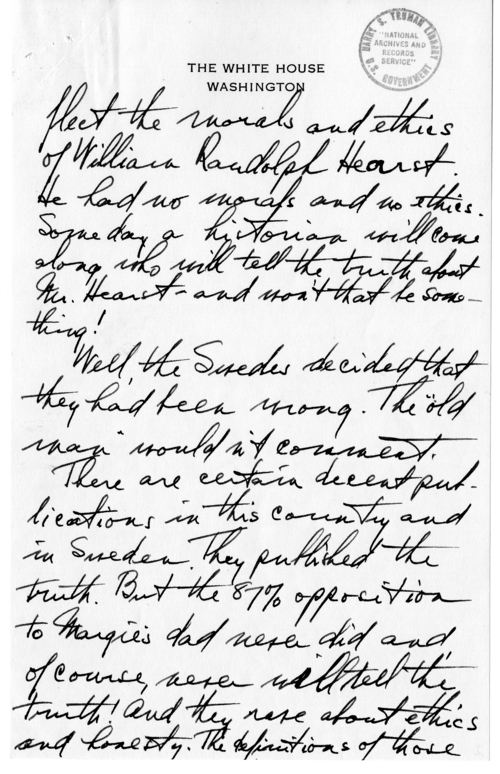 HARRY S. TRUMAN LIBRARY
"NATIONAL
ARCHIVES AND
RECORDS
SERVICE"
U.S. GOVERNMENT
THE WHITE HOUSE
WASHINGTON
flect the morals and ethics
of William Randolph Hearst.
He had no morals and no ethics.
Some day a historian will come
along who will tell the truth about
Mr. Hearst - and won't that be some-
thing!
Well, the Swedes decided that
they had been wrong. The "old
man" would n't comment.
There are certain decent pub-
lications in this country and
in Sweden. They published the
truth. But the 87% opposition
to Margie's dad never did and,
of course, never will tell the
truth! And they rave about ethics
and honesty. The definitions of those